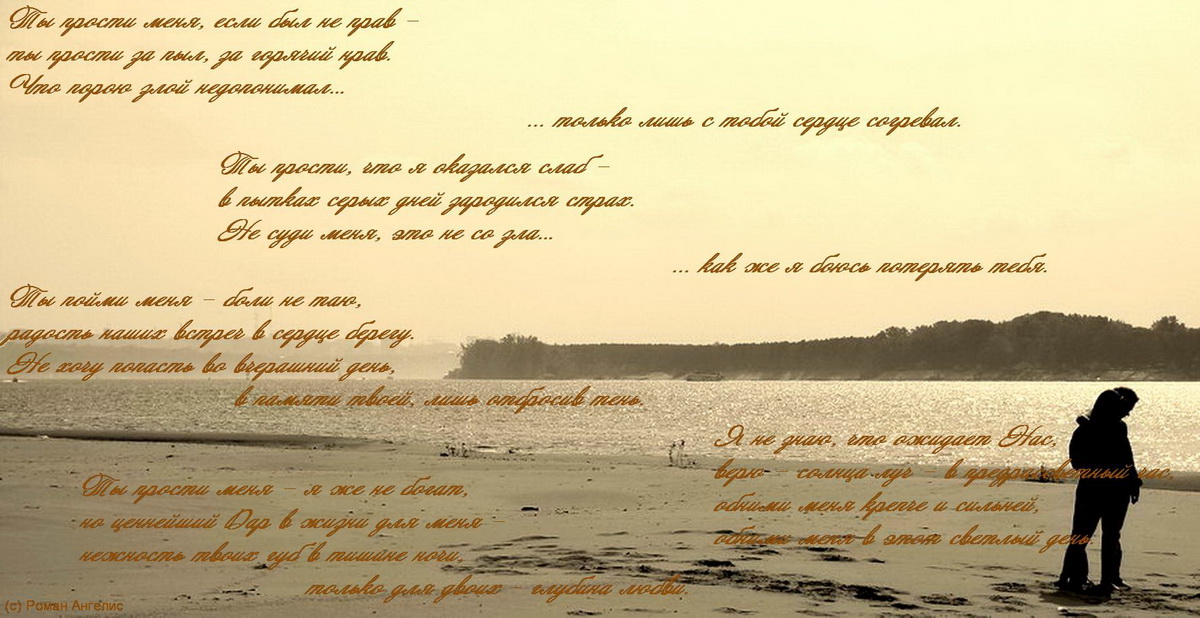 Ты прости меня, если был не прав –
ты прости за пыл, за горячий нрав.
Что порою злой недопонимал...
... только лишь с тобой сердце согревал.
Ты прости, что я оказался слаб –
в пытках серых дней зародился страх.
Не суди меня, это не со зла...
... как же я боюсь потерять тебя.
Ты пойми меня – боли не таю,
радость наших встреч в сердце берегу.
Не хочу попасть во вчерашний день,
в памяти твоей, лишь отбросив тень.
Ты прости меня – я же не богат,
но ценнейший Дар в жизни для меня –
нежность твоих губ в тишине ночи,
только для двоих глубина любви.
Я не знаю, что ожидает Нас,
верю – солнца луч – в предрассветный час,
обними меня крепче и сильней,
обними меня в этот светлый день.
(c) Роман Ангелис